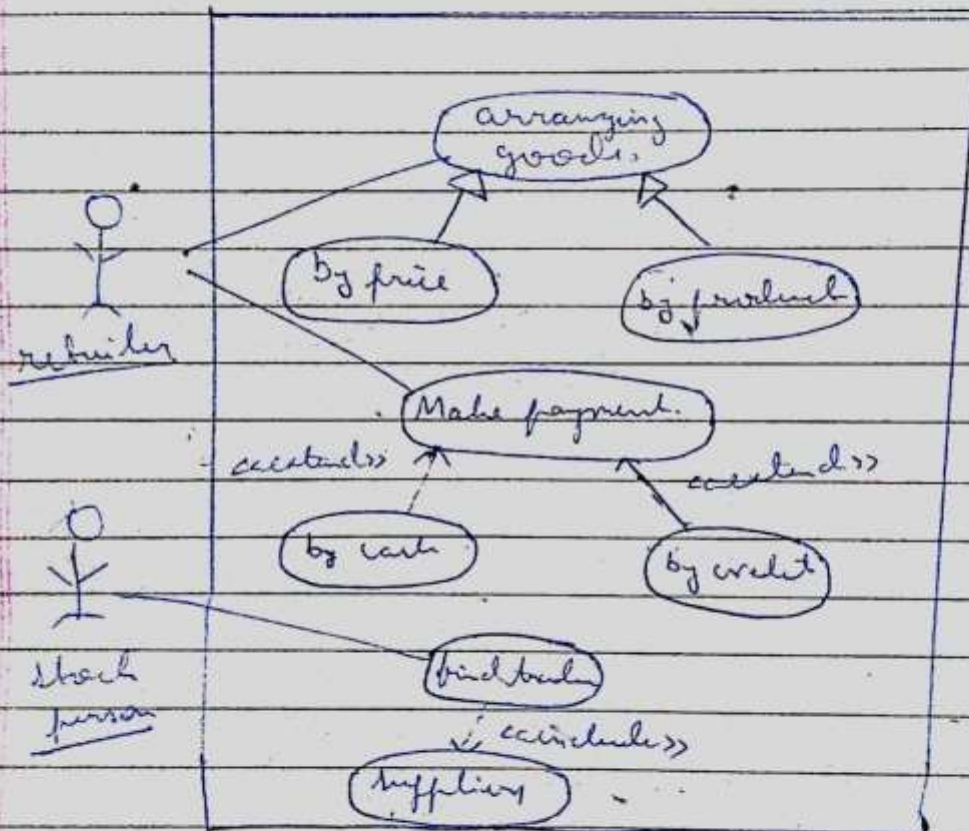 arranging
goods.
by price
by product
retailer
Make payment.
<<extend>>
<<extend>>
by cash
by credit
stock
person
find trader
<<include>>
suppliers